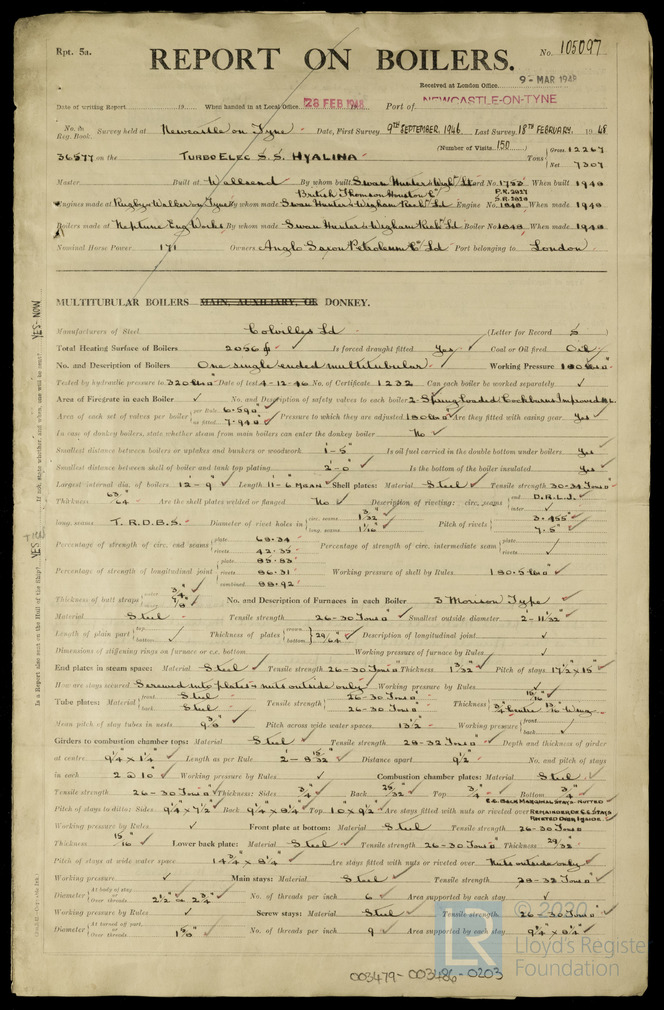 Rpt. 5a.
No. 105097
REPORT ON BOILERS.
Received at London Office 9 - MAR 1948
Date of writing Report 19 When handed in at Local Office 28 FEB 1948 Port of NEWCASTLE-ON-TYNE
No. in Reg. Book. Survey held at Newcastle on Tyne Date, First Survey 9TH SEPTEMBER, 1946 Last Survey 18TH FEBRUARY, 1948
(Number of Visits 150)
36577 on the TURBO ELEC S.S. HYALINA Tons Gross 12267 Net 7307
Master Built at Wallsend By whom built Swan Hunter & Wigh. Ld Yard No. When built 1948
British Thomson Houston Co
Engines made at Rugby & Walker on Tyne By whom made Swan Hunter & Wigham Rich. Ld Engine No. When made 1948
Boilers made at Neptune Eng Works By whom made Swan Hunter & Wigham Rich. Ld Boiler No. When made 1948
Nominal Horse Power 171 Owners Anglo Saxon Petroleum Co Ld Port belonging to London
MULTITUBULAR BOILERS MAIN, AUXILIARY, OR DONKEY.
Manufacturers of Steel Colvilles Ld (Letter for Record S)
Total Heating Surface of Boilers 2056 Is forced draught fitted Yes Coal or Oil fired Oil
No. and Description of Boilers One single ended multitubular Working Pressure 180 lbs
Tested by hydraulic pressure to 320 lbs Date of test 4-12-46 No. of Certificate 1232 Can each boiler be worked separately ✓
Area of Firegrate in each Boiler ✓ No. and Description of safety valves to each boiler 2 Spring loaded Cockburns Improved H.L.
Area of each set of valves per boiler per Rule 6.590 as fitted 7.940 Pressure to which they are adjusted 180 lbs Are they fitted with easing gear Yes
In case of donkey boilers, state whether steam from main boilers can enter the donkey boiler No
Smallest distance between boilers or uptakes and bunkers or woodwork 1'-5" Is oil fuel carried in the double bottom under boilers Yes
Smallest distance between shell of boiler and tank top plating 2'-0" Is the bottom of the boiler insulated Yes
Largest internal dia. of boilers 12'-9" Length 11'-6" MEAN Shell plates: Material Steel Tensile strength 30-34 Tons
Thickness 63/64" Are the shell plates welded or flanged No Description of riveting: circ. seams end D.R.L.J. inter
long. seams T.R.D.B.S. Diameter of rivet holes in circ. seams 1 3/32" long. seams 1 1/16" Pitch of rivets 3.455" 7.5"
Percentage of strength of circ. end seams plate 68.34 rivets 42.35 Percentage of strength of circ. intermediate seam plate rivets
Percentage of strength of longitudinal joint plate 85.83 rivets 86.31 combined 88.92 Working pressure of shell by Rules 180.5 lbs
Thickness of butt straps outer inner No. and Description of Furnaces in each Boiler 3 Morison Type
Material Steel Tensile strength 26-30 Tons Smallest outside diameter 2'-11/32"
Length of plain part top bottom Thickness of plates crown bottom 29/64" Description of longitudinal joint ✓
Dimensions of stiffening rings on furnace or c.c. bottom Working pressure of furnace by Rules ✓
End plates in steam space: Material Steel Tensile strength 26-30 Tons Thickness 1 3/32" Pitch of stays 17 1/2" x 15"
How are stays secured Screwed into plates & nuts outside only Working pressure by Rules ✓
Tube plates: Material front Steel back Steel Tensile strength 26-30 Tons 26-30 Tons Thickness 15/16"
Mean pitch of stay tubes in nests Pitch across wide water spaces 13 1/2" Working pressure front back
Girders to combustion chamber tops: Material Steel Tensile strength 28-32 Tons Depth and thickness of girder
at centre 9 1/4" x 1 1/4" Length as per Rule 2'-8 15/32" Distance apart 9 1/2" No. and pitch of stays
in each 2 @ 10" Working pressure by Rules ✓ Combustion chamber plates: Material Steel
Tensile strength 26-30 Tons Thickness: Sides 3/4" Back 25/32" Top 3/4" Bottom 3/4"
C.C. BACK MARGINAL STAYS NUTTED
Pitch of stays to ditto: Sides 9 1/4" x 7 1/2" Back 9 1/4" x 8 1/4" Top 10" x 9 1/2" Are stays fitted with nuts or riveted over REMAINDER OF C.C. STAYS RIVETED OVER INSIDE
Working pressure by Rules ✓ Front plate at bottom: Material Steel Tensile strength 26-30 Tons
Thickness 15/16" Lower back plate: Material Steel Tensile strength 26-30 Tons Thickness 29/32"
Pitch of stays at wide water space 14 3/4" x 8 1/4" Are stays fitted with nuts or riveted over Nuts outside only
Working pressure ✓ Main stays: Material Steel Tensile strength 28-32 Tons
Diameter At body of stay or Over threads 2 1/2" & 2 3/4" No. of threads per inch 6 Area supported by each stay ✓
Working pressure by Rules ✓ Screw stays: Material Steel Tensile strength 26-30 Tons
Diameter At turned off part, or Over threads 1 5/8" No. of threads per inch 9 Area supported by each stay 9 1/4" x 8 1/4"
003479-003486-0203
Is a Report also sent on the Hull of the Ship? YES
If not, state whether, and when, one will be sent? YES-NOW
© 2020
LR
Lloyd's Register
Foundation